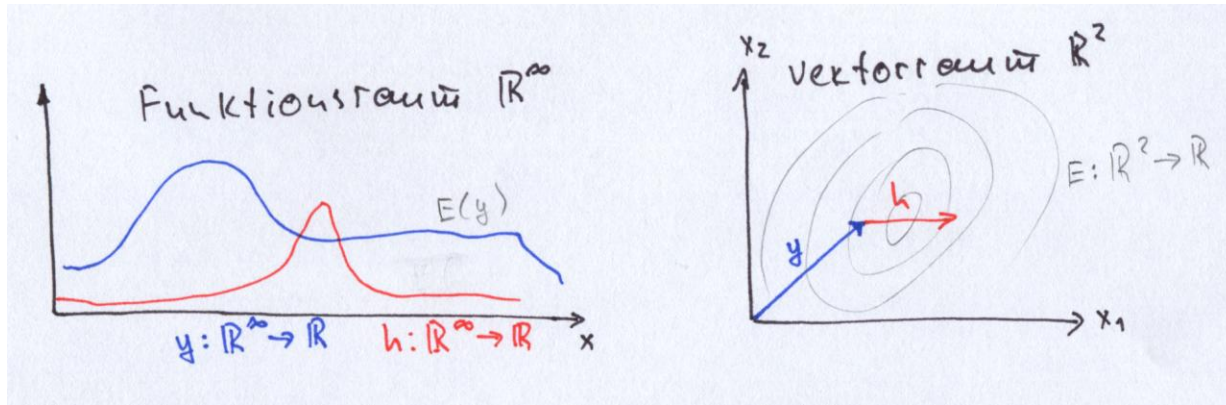 Funktionsraum ℝ^∞
E(y)
y: ℝ^∞ → ℝ
h: ℝ^∞ → ℝ
x
x₂
Vektorraum ℝ²
E: ℝ² → ℝ
h
y
x₁